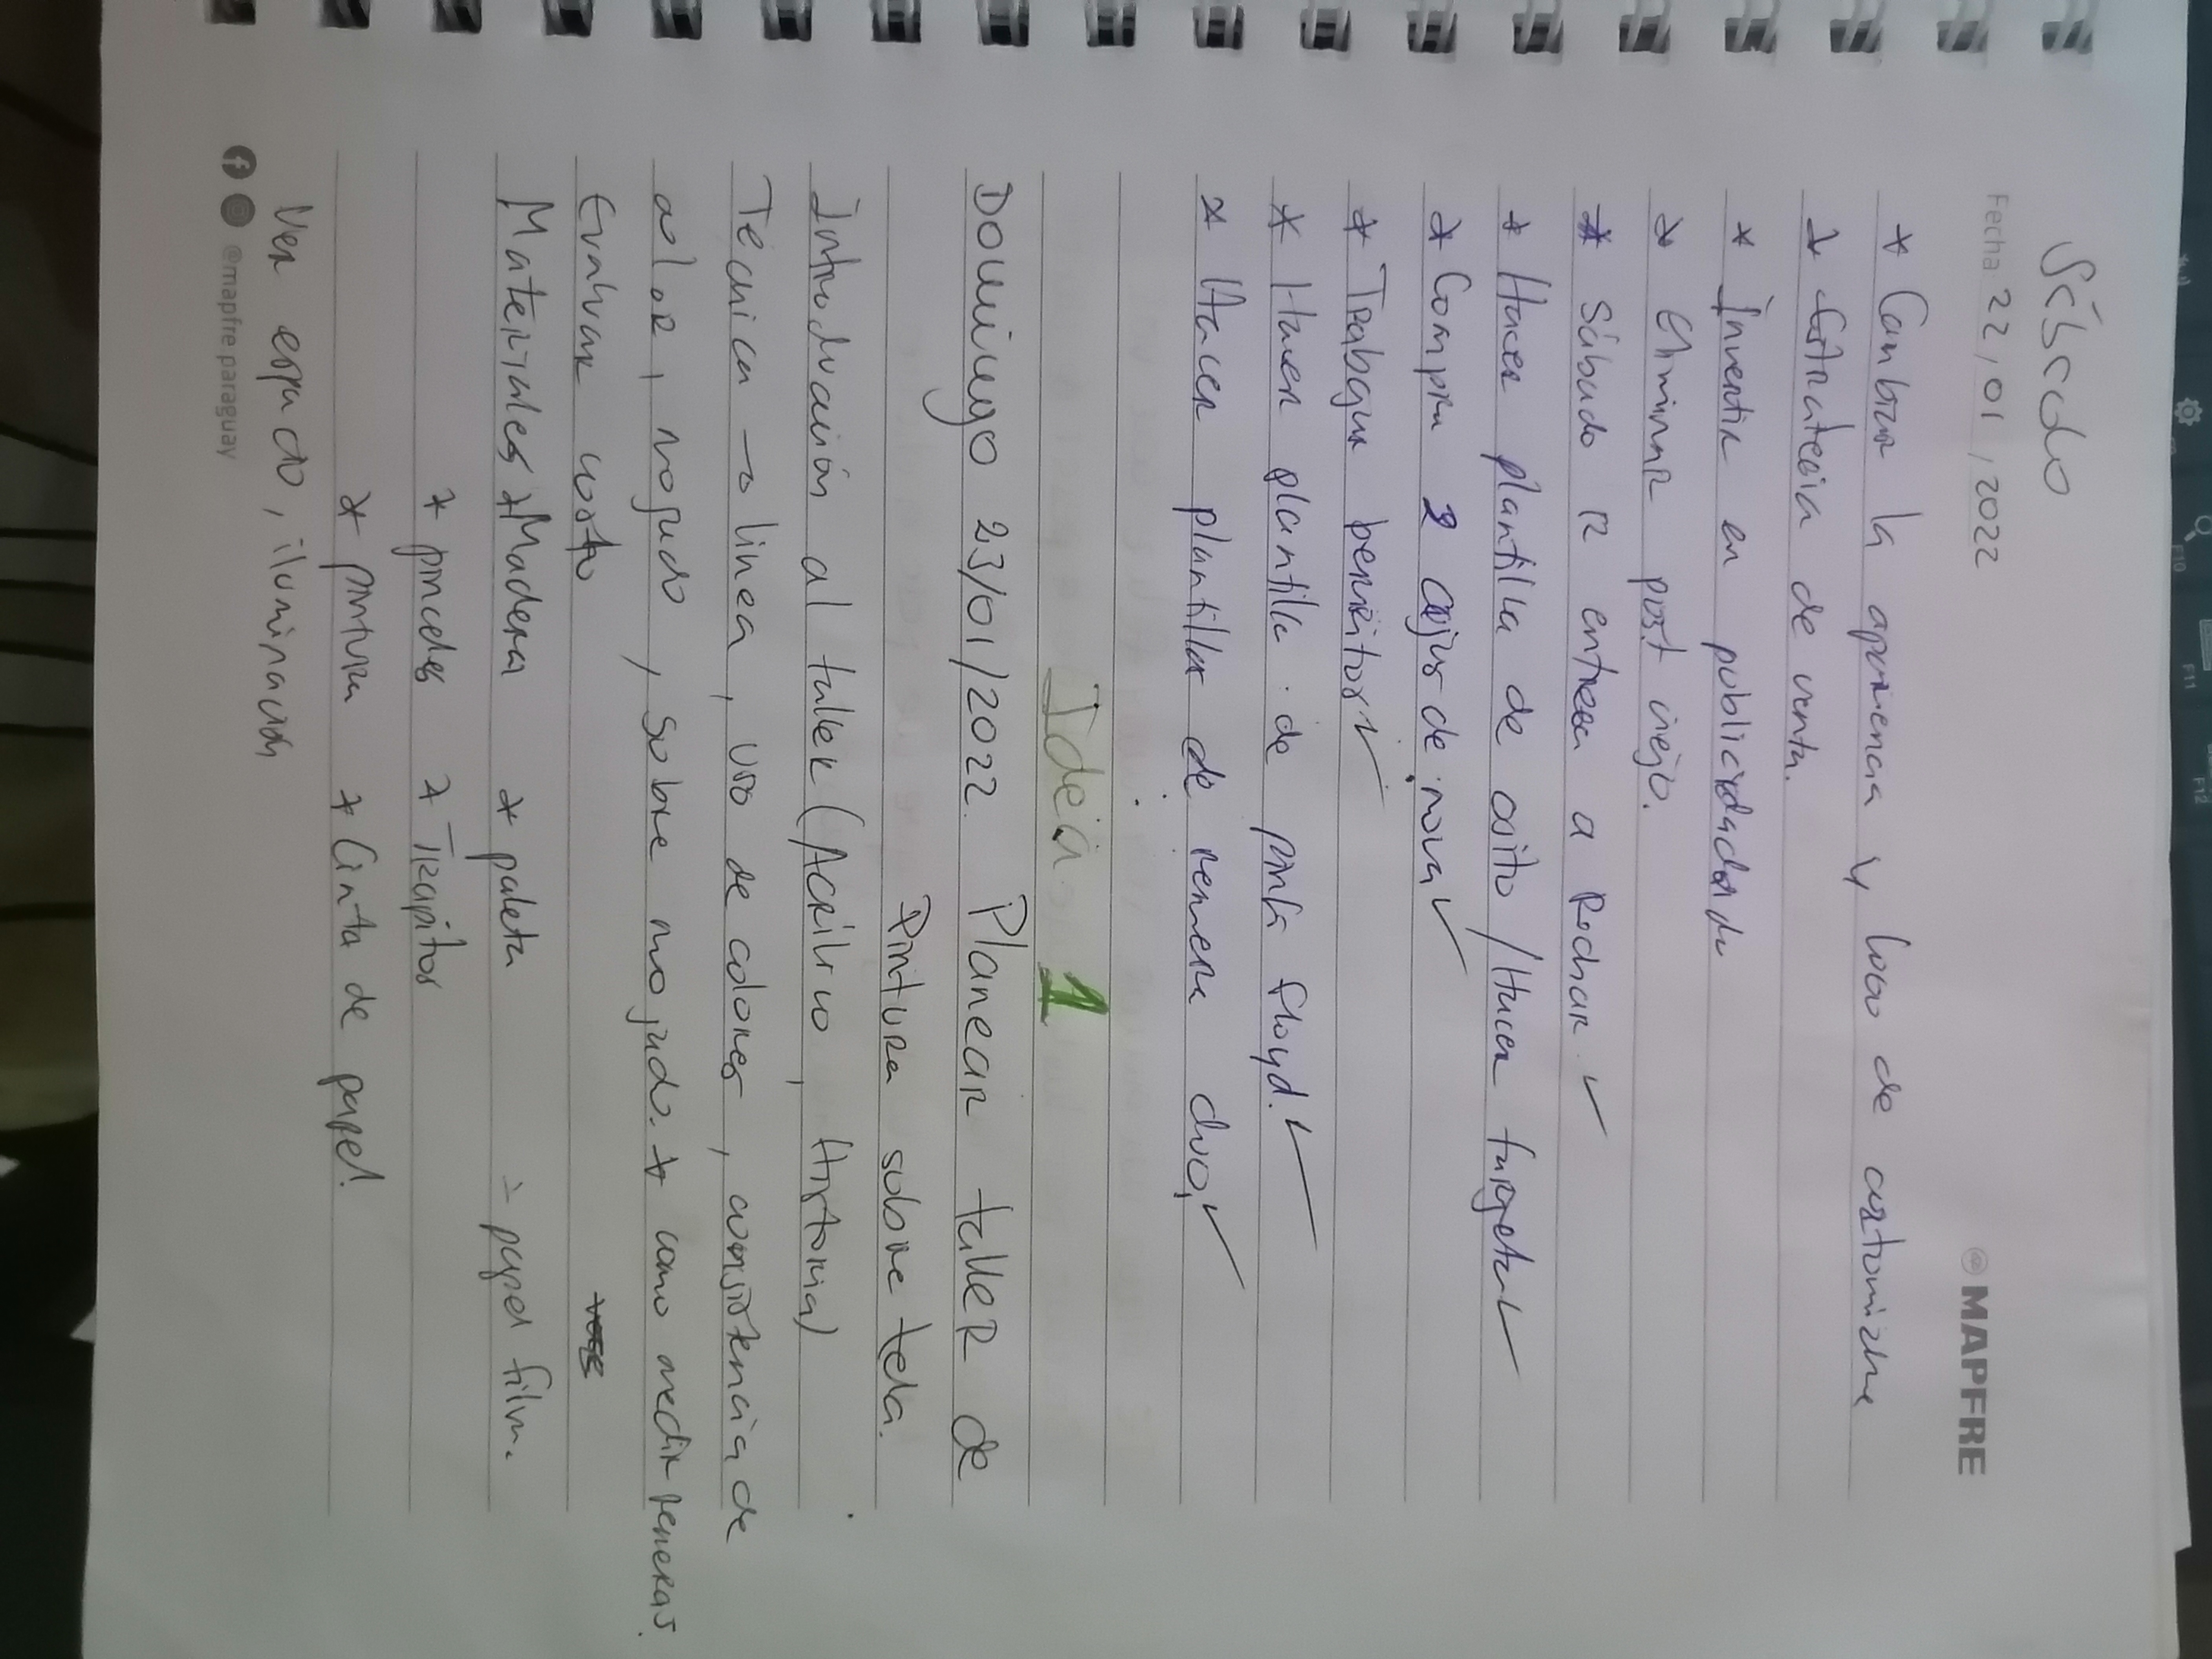 Sábado
Fecha 22/01/2022
MAPFRE
* Cambiar la apariencia y logo de customizate
* Estrategia de venta.
* Invertir en publicidad
* Eliminar post viejo.
* Sábado 12 entrega a Rodhar ✓
* Hacer plantilla de osito / Hacer turgetul ✓
* Compra 2 cajas de nova ✓
* Trabajar berritos ✓
* Hacer plantilla de pink floyd. ✓
* Hacer plantillas de remera duo, ✓
Idea 1
Domingo 23/01/2022 Planear taller de
Pintura sobre tela.
Introducción al taller (Acrilico, Historia)
Tecnica → linea, uso de colores, consistencia de
color, mojado, sobre mojado. * como medir remeras.
Evaluar costo
Materiales * Madera * paleta - papel film.
* pinceles * Trapitos
* pintura * Cinta de papel
Ver espacio, iluminación
@mapfre.paraguay